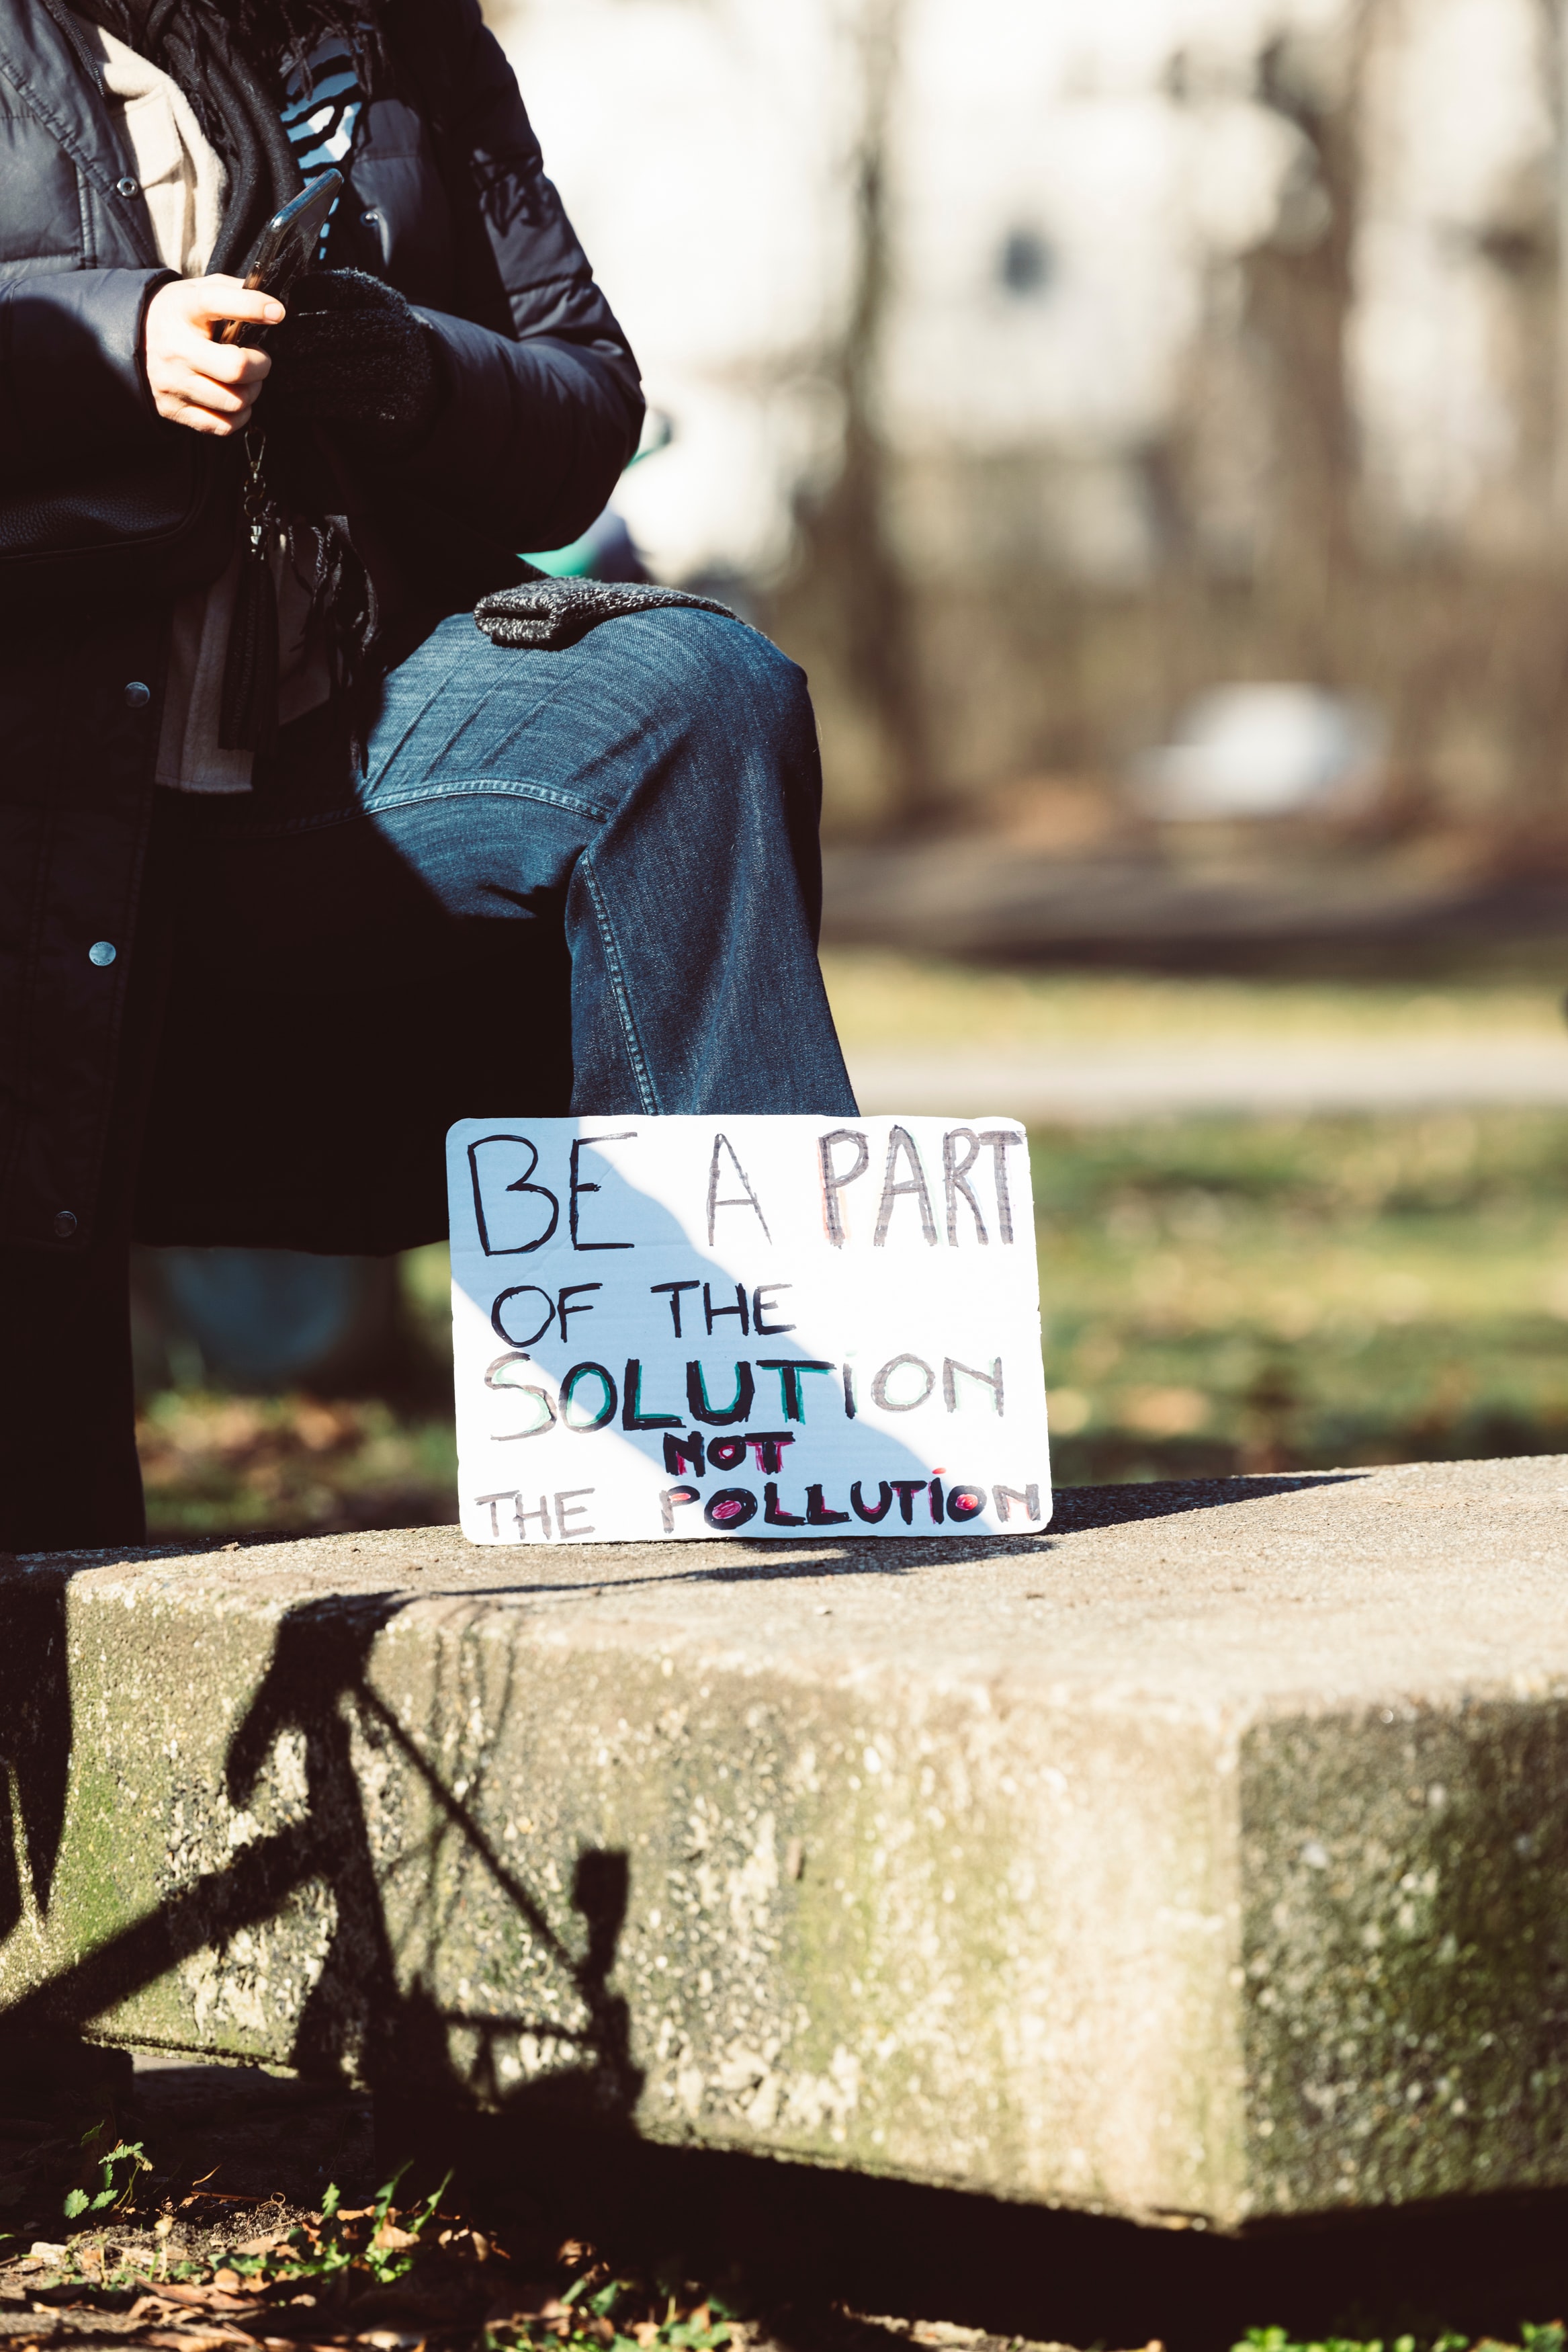 BE A PART
OF THE
SOLUTiON
NOT
THE POLLUTiON